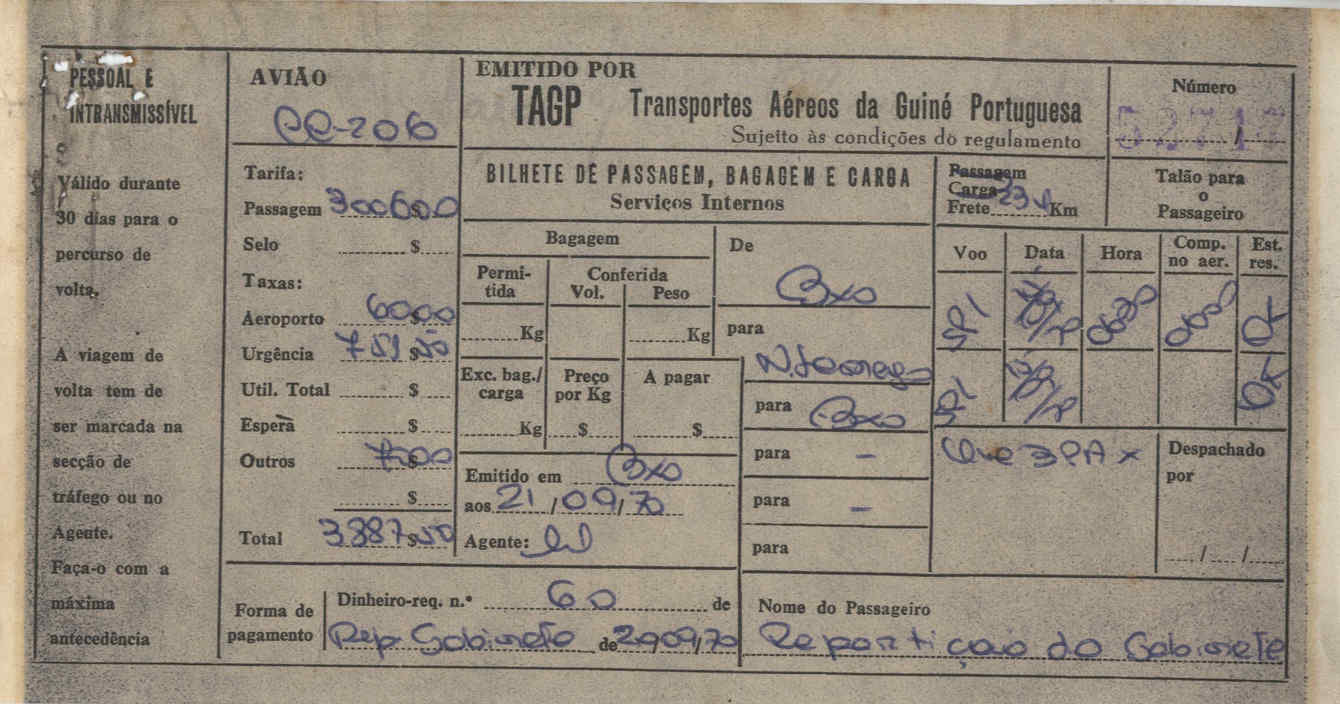 PESSOAL E
INTRANSMISSÍVEL
Válido durante
30 dias para o
percurso de
volta.
A viagem de
volta tem de
ser marcada na
secção de
tráfego ou no
Agente.
Faça-o com a
máxima
antecedência
AVIÃO
EMITIDO POR
TAGP Transportes Aéreos da Guiné Portuguesa
Sujeito às condições do regulamento
Número
BILHETE DE PASSAGEM, BAGAGEM E CARGA
Serviços Internos
Passagem
Carga
Frete Km
Talão para
o
Passageiro
Tarifa:
Passagem
Selo $
Taxas:
Aeroporto 60$00
Urgência
Util. Total $
Espera $
Outros
$
Total 3.387$50
Bagagem
Permitida
Conferida
Vol. Peso
Kg Kg
Exc. bag./
carga
Preço
por Kg
A pagar
Kg $ $
Emitido em Bxo
aos 21/09/70
Agente:
De
Bxo
para
para Bxo
para -
para -
para
Voo Data Hora Comp.
no aer.
Est.
res.
OK
OK
3 PAX
Despachado
por
/ /
Forma de
pagamento
Dinheiro-req. n.º 60 de
Rep. Gabinete de
Nome do Passageiro
Repartição do Gabinete